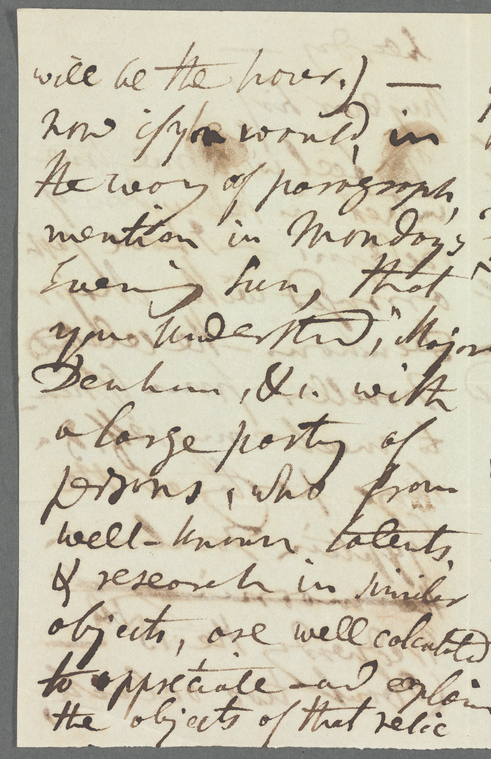 will be the hour.) —
now if you would, in
the way of paragraph,
mention in Monday's
Evening Sun, that
you understand, "Major
Denham, &c. with
a large party of
persons, who from
well-known talents,
& research in similar
objects, are well calculated
to appreciate and explain
the objects of that relic